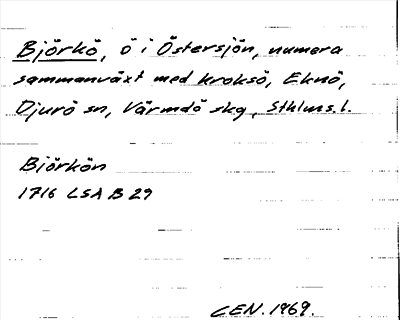 Björkö, ö i Östersjön, numera
sammanväxt med Kroksö, Eknö,
Djurö sn, Värmdö skg, Sthlms. l.
Björkön
1716 LSA B 29
CEN. 1969.